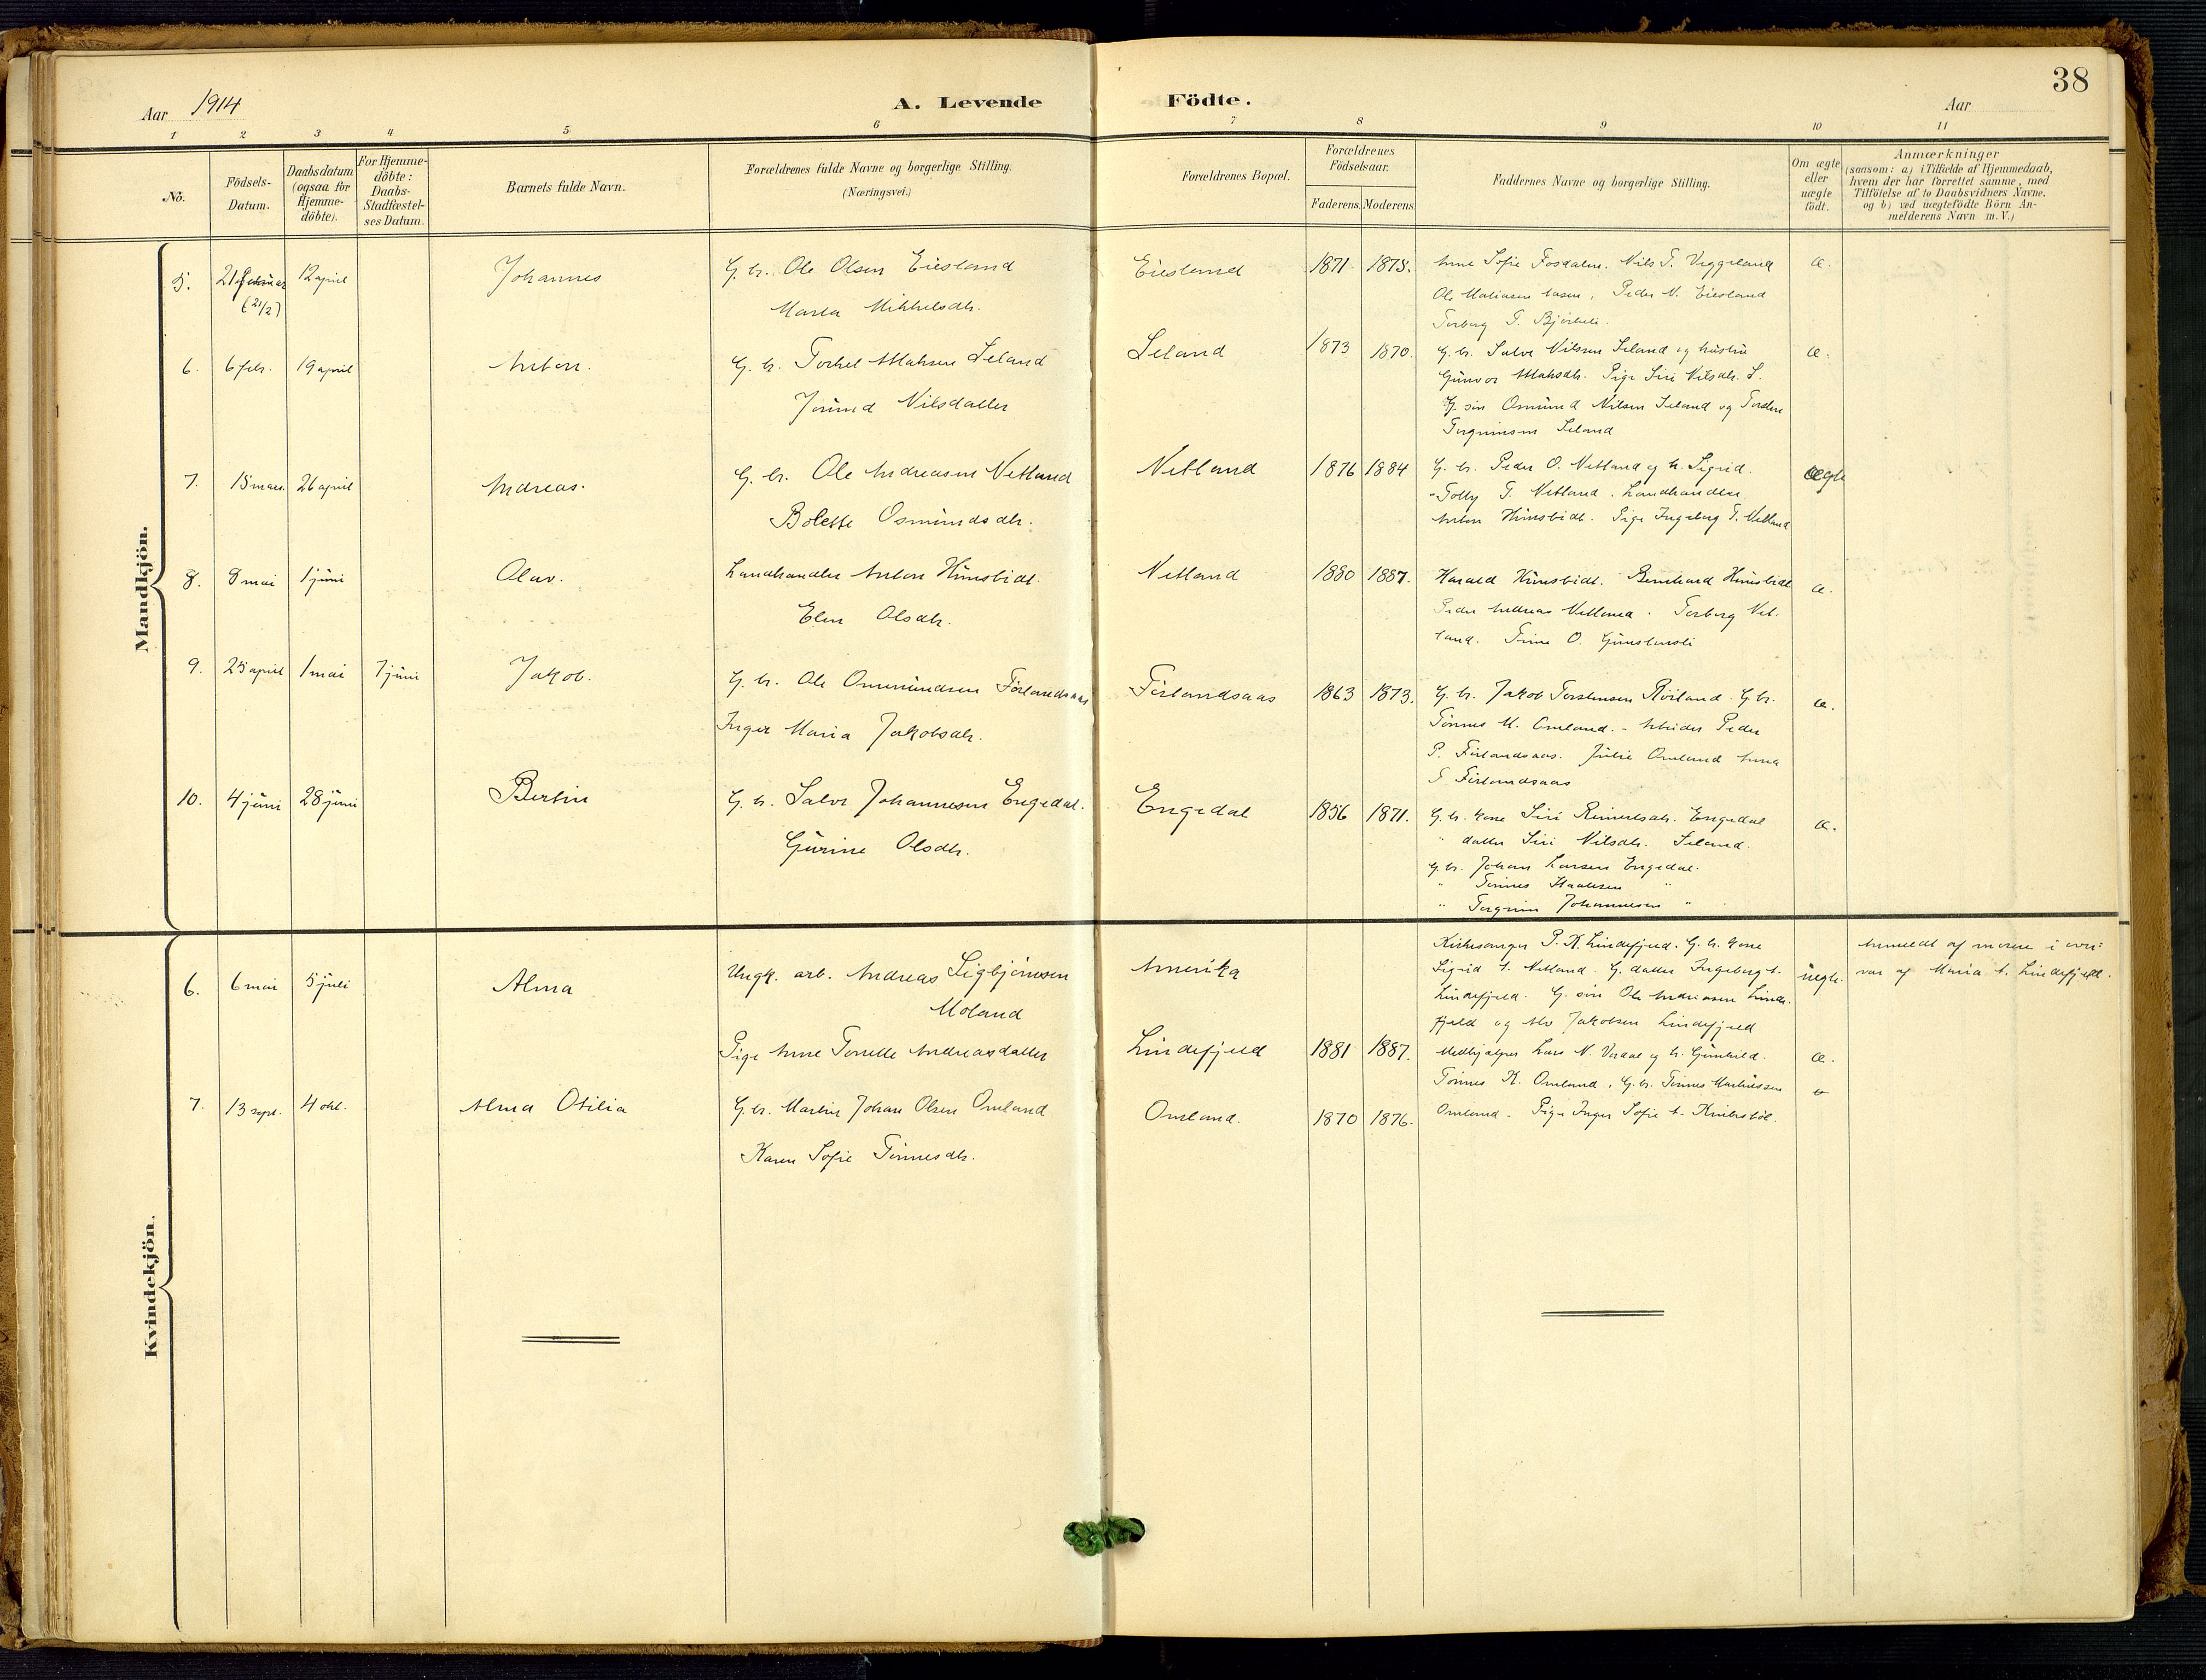 38
Aar 1914
A. Levende Födte.
Aar
1 2 3 4 5 6 7 8 9 10 11
Nö.
Födsels-Datum.
Daabsdatum (ogsaa for Hjemme-döbte).
For Hjemme-döbte: Daabs-Stadfæstel-ses Datum.
Barnets fulde Navn.
Forældrenes fulde Navne og borgerlige Stilling.
(Næringsvei.)
Forældrenes Bopæl.
Forældrenes Födselsaar.
Faderens. Moderens.
Faddernes Navne og borgerlige Stilling.
Om ægte eller uægte födt.
Anmærkninger
(saasom: a) i Tilfælde af Hjemmedaab,
hvem der har forrettet samme, med
Tilföielse af to Daabsvidners Navne.
og b) ved uægtefödte Börn An-
melderens Navn m. V.)
Mandkjön.
5. 21 februar (21/2) 12 april Johannes G. br. Ole Olsen Eiesland Eiesland 1871 1875. Anne Sofie Fosdalen. Nils T. Veggeland æ.
Marta Mikkelsdtr. Ole Matiasen Aasen, Peder N. Eiesland
Torborg T.
6. 6 febr. 19 april Anton. G. br. Torkel Aslaksen Leland Leland 1873 1870. G. br. Salve Nilsen Leland og hustru æ.
Jorund Nilsdatter Gunvor Aslaksdtr. Pige Siri Nilsdtr. L.
G. søn Osmund Nilsen Leland og Torstein
Torgrimsen Leland
7. 15 mars 26 april Andreas. G. br. Ole Andreasen Netland Netland 1876 1884 G. br. Peder O. Netland og h. Sigrid. ægte
Bolette Osmundsdtr. " Tolly T. Netland. Landhandler
Anton Hunsbedt. Pige Ingeborg T. Netland
8. 8 mai 1 juni Olav. Landhandler Anton Hunsbedt. Netland 1880 1887. Harald Hunsbedt. Bernhard Hunsbedt æ.
Elen Olsdtr. Peder Andreas Netland. Torborg Net-
land. Trine O.
9. 25 april 1 mai 7 juni Jakob. G. br. Ole Ommundsen Førlandsaas Førlandsaas 1863 1873. G. br. Jakob Torstensen Røiland. G. br. æ.
Inger Maria Jakobsdtr. Tønnes M. Omland. - Arbeider Peder
P. Førlandsaas. Julie Omland Anna
T Førlandsaas
10. 4 juni 28 juni Bertin G. br. Salve Johannesen Engedal. Engedal 1856 1871. G. br. kone Siri Reinertsdtr. Engedal æ.
Gurine Olsdtr. " datter Siri Nilsdtr. Leland.
G. br. Johan Larsen Engedal.
" Tønnes Haaversen "
" Torgrim Johannesen "
Kvindekjön.
6. 6 mai 5 juli Alma Ungk. arb. Andreas Sigbjørnsen Amerika Kirkesanger P. K. Lindefjeld. G. br. kone uegte. Anmeldt af moren i over-
Moland Sigrid A. Netland. G. datter Ingeborg A. vær af Maria A. Lindefjeld.
Lindefjeld. G. søn Ole Andreassen Linde-
fjeld og Alv Jakobsen Lindefjeld
Pige Anne Tonette Andreasdatter Lindefjeld 1881 1887. Medhjælper Lars N. Verdal og h. Gunhild. æ.
7. 13 sept. 4 okt. Alma Otilia G. br. Martin Johan Olsen Omland Omland. 1870 1876. Tønnes K. Omland, G. br. Tønnes Markussen
Karen Sofie Tønnesdtr. Omland. Pige Inger Sofie A.